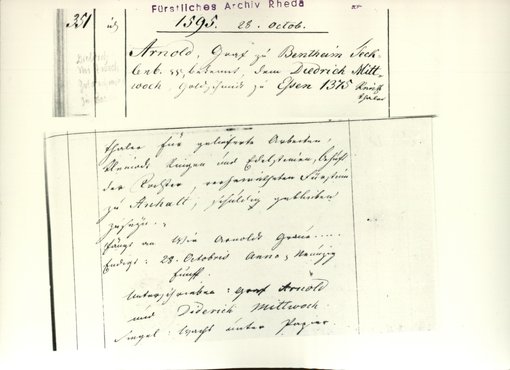 Fürstliches Archiv Rheda
351
1595. 28. Octob.
Arnold, Graf zu Bentheim Teck-
lenb. pp. bekennt, dem Diedrich Mitt-
woch, Goldschmid zu Essen 1375 Reichs
thaler
thaler für gelieferte Arbeiten,
Kleinode Ringen und Edelsteinen, behuf
der Tochter, verheiratheten Fürstin
zu Anhalt, schuldig geblieben
zu seyn.
Fängt an Wir Arnoldt Grave....
Endigt: 28. Octobris Anno, Neunzig
fünff.
Unterschrieben: Graf Arnold
und Diderich Mittwoch.
Siegel: Wachs unter Papier.